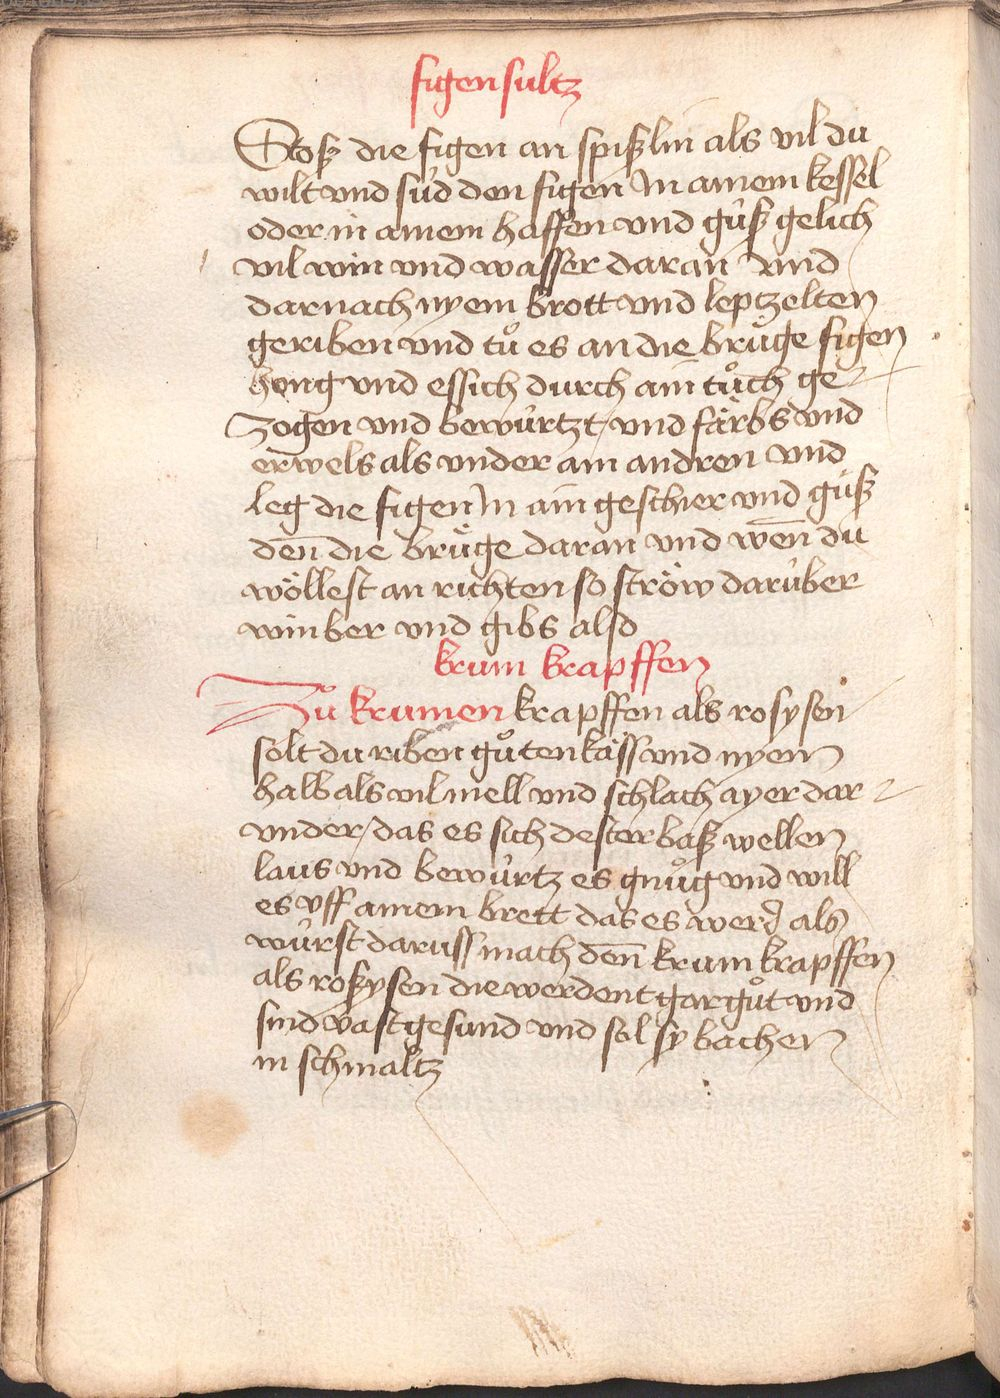 figen sultz
Stosz die figen an spiszlin als vil du
wilt vnd süd den figen In ainem kessel
oder in ainem haffen vnd güsz gelich
vil win vnd wasser daran vnd
darnach nyem brott vnd leptzelten
geriben vnd tuͦ es an die bruͤge figen
hong vnd essich durch ain tuͦch ge
zogen vnd bewürtzt vnd färbs vnd
erwels als vnder ain andren vnd
leg die figen In ain geschier vnd güsz
den̄ die bruͤge daran vnd wen̄ du
wöllest an richten so ströw darüber
winber vnd gibs also
krum krapffen
Zuͦ krumen krapffen als rosysen
solt du riben guͦten käss vnd nyem
halb als vil mell vnd schlach ayer dar
vnder / das es sich dester basz wellen
laus vnd bewürtz es gnuͦg vnd will
es vff ainem brett das es werd als
würst daruss mach den̄ krum krapffen
als roszysen die werdent gar guͦt vnd
sind vast gesund vnd sol sy bachen
in schmaltz